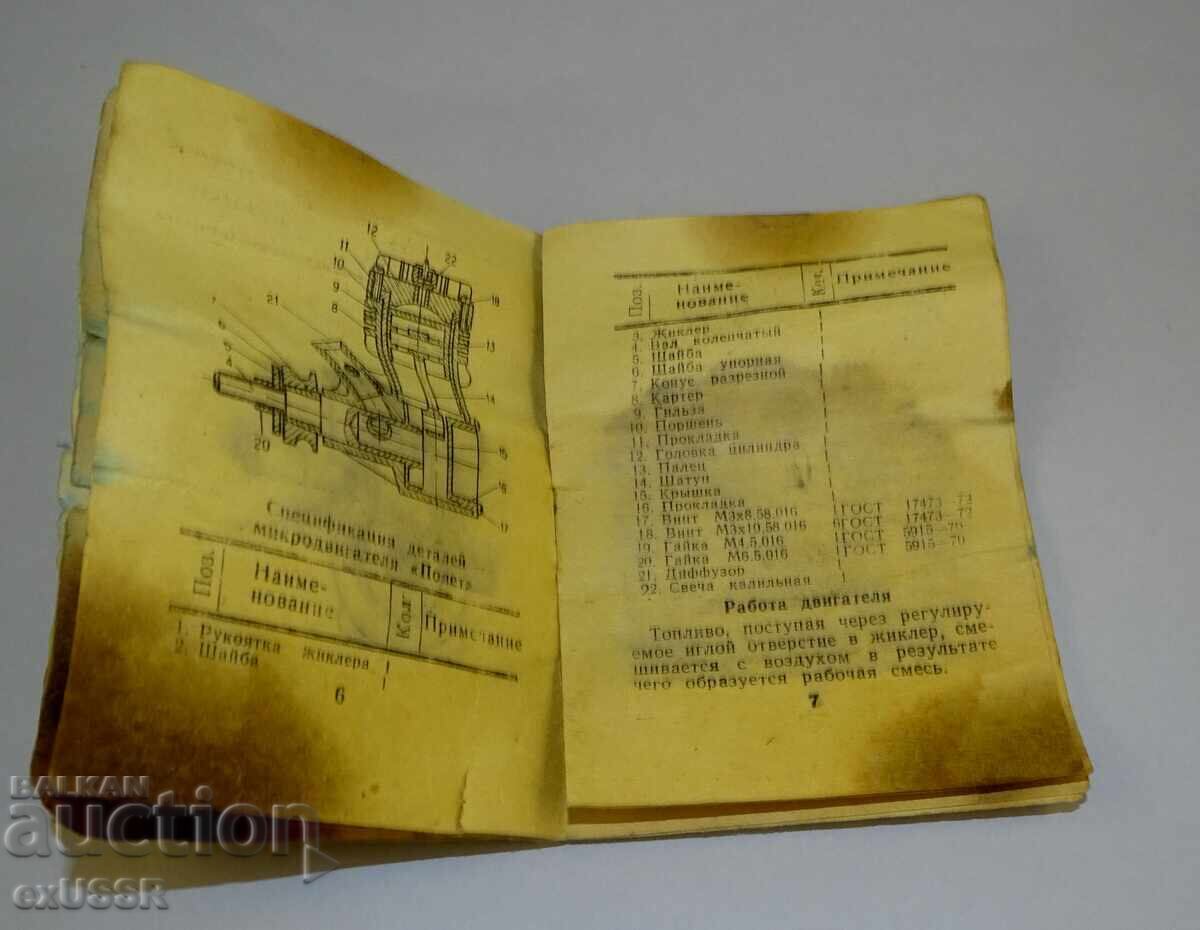 12
22
11
10
9
8
21
7
6
5
4
19
13
14
15
16
17
20
Спецификация деталей
микродвигателя «Полет»
Поз.
Наиме-
нование
Кол.
Примечание
1. Рукоятка жиклера 1
2. Шайба 1
6
Поз.
Наиме-
нование
Кол.
Примечание
3. Жиклер
4. Вал коленчатый
5. Шайба
6. Шайба упорная
7. Конус разрезной
8. Картер
9. Гильза
10. Поршень
11. Прокладка
12. Головка цилиндра
13. Палец
14. Шатун
15. Крышка
16. Прокладка
17. Винт М3х8.58.016 ГОСТ 17473—72
18. Винт М3х10.58.016 6 ГОСТ 17473—72
19. Гайка М4.5.016 1 ГОСТ 5915—70
20. Гайка М6.5.016 1 ГОСТ 5915—70
21. Диффузор
22. Свеча калильная 1
Работа двигателя
Топливо, поступая через регулиру-
емое иглой отверстие в жиклер, сме-
шивается с воздухом в результате
чего образуется рабочая смесь.
7
BALKAN
auction
exUSSR